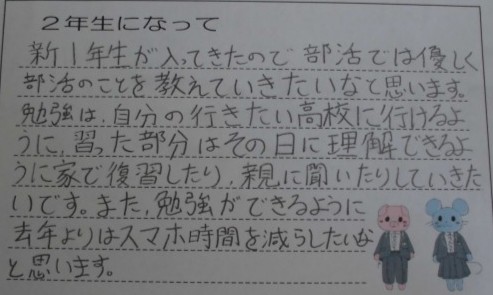 ２年生になって
新１年生が入ってきたので部活では優しく
部活のことを教えていきたいなと思います。
勉強は、自分の行きたい高校に行けるよ
うに、習った部分はその日に理解できるよ
うに家で復習したり、親に聞いたりしていきた
いです。また、勉強ができるように
去年よりはスマホ時間を減らしたいな
と思います。